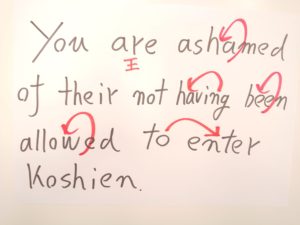 You are ashamed
王
of their not having been
allowed to enter
Koshien.